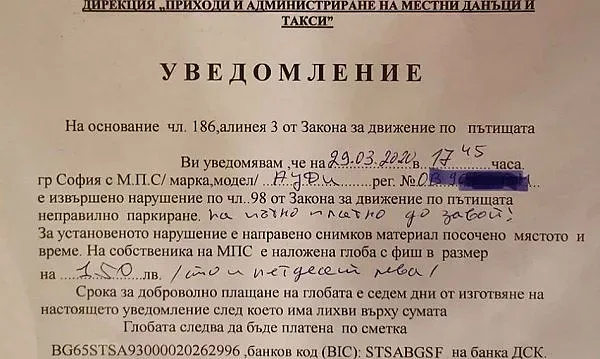 ДИРЕКЦИЯ „ПРИХОДИ И АДМИНИСТРИРАНЕ НА МЕСТНИ ДАНЪЦИ И
ТАКСИ”
УВЕДОМЛЕНИЕ
На основание чл. 186,алинея 3 от Закона за движение по пътищата
Ви уведомявам ,че на 29.03.2020 в. 17 45 часа.
гр София с М.П.С/ марка,модел/ АУДИ рег. №ОВ
е извършено нарушение по чл..98 от Закона за движение по пътищата
неправилно паркиране. на пътно платно до завой!
За установеното нарушение е направено снимков материал посочено мястото и
време. На собственика на МПС е наложена глоба с фиш в размер
на 150 лв. /сто и петдесет лева/
Срока за доброволно плащане на глобата е седем дни от изготвяне на
настоящето уведомление след което има лихви върху сумата
Глобата следва да бъде платена по сметка
BG65STSA93000020262996 ,банков код (BIC): STSABGSF на банка ДСК.